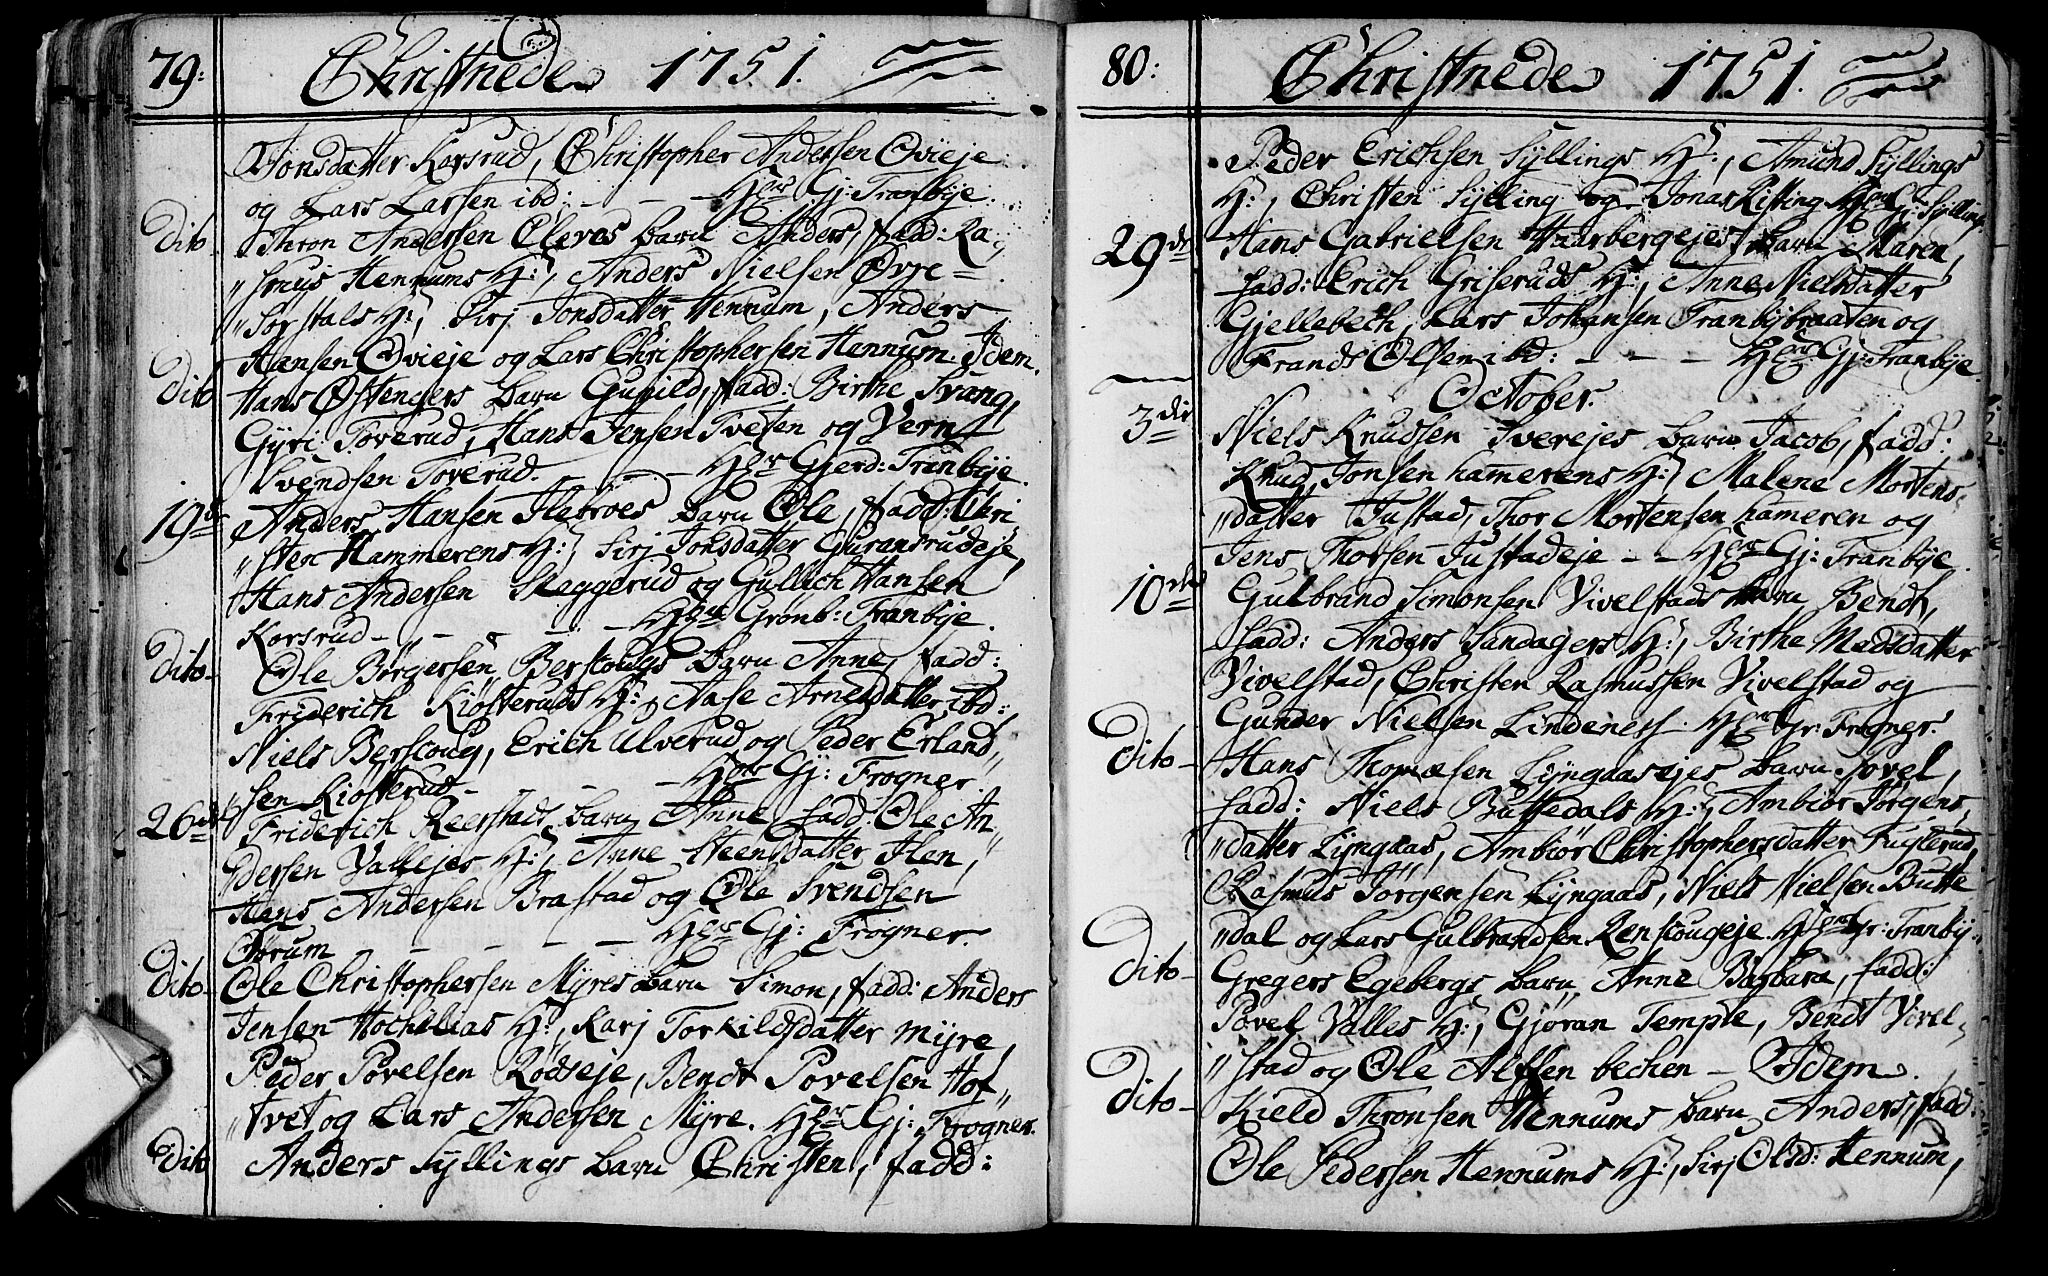 79: Christnede 1751.
Jonsdatter Korsrud, Christopher Andersen Ovieje
og Lars Larsen ibd: - - - Her Gj: Tranbye.
Dito Thron Andersen Eleves barn Anders, fadd: Ra-
"smus Hennums H:, Anders Nielsen Øvre-
"Sørstals H:, Sirj Jonsdatter Hennum, Anders
Hansen Ovieje og Lars Christophersen Hennum. Idem.
Dito Hans Østengers barn Gunild, fadd: Birthe Svang,
Gyri Toverud, Hans Jensen Tveten og Vern
Svendsen Toverud. - - Her Gjerd: Tranbye.
19de Anders Hansen Flatroes barn Ole, fadd: Chri-
"sten Hammerens H:, Sirj Jonsdatter Guransrudeje,
Hans Andersen Skaggerud og Gullich Hansen
Korsrud - - - - Her Gronb: Tranbye.
Dito- Ole Børgersen Berskougs barn Anne, fadd:
Friderich Kiøsteruds H:, Aase Arnesdatter ibd:
Niels Berskoug, Erich Ulverud og Peder Erland,"
sen Kiøsterud - - - Her Gj: Frogner.
26de Friderich Reerstads barn Anne fadd: Ole An,"
dersen Vallejes H:, Anne Steensdatter Flen,"
Hans Andersen Brastad og Ole Svendsen
Ørum - - - - Her Gj: Frogner.
Dito- Ole Christophersen Myres barn Simon, fadd: Anders
Jensen Hochelias H:, Karj Torkildsdatter Myre,
Peder Povelsen Rødseje, Bendt Povelsen Hof"
"tvet og Lars Andersen Myre. Her Gj: Frogner.
Dito Anders Syllings barn Christen, fadd:
80: Christnede 1751.
Peder Erichsen Syllings H:, Amund Syllings
H:, Christen Sylling og Jonas Kitting Her Gj: Sylling
29de Hans Gabrielsen Huarbergejes barn Maren,
fadd: Erich Griseruds H:, Anne Nielsdatter
Gjellebech, Lars Johansen Tranbybraaten og
Frands Olsen ibd: - - - Her Gj: Tranbye.
October.
3die Niels Knudsen Sverejes barn Jacob, fadd:
Knud Jonsen hamerens H:, Malene Mortens-
"datter Justad, Thor Mortensen hameren og
Jens Thorsen Justadeje - - Her Gj: Tranbye.
10de Gulbrand Simonsen Vivelstads barn Bendt,
fadd: Anders Sandagers H:, Birthe Madsdatter
Vivelstad, Christen Rasmussen Vivelstad og
Gunder Nielsen Lindenes- Her Gr: Frogner.
Dito- Hans Thomæsen Lyngaasejes barn Povel,
fadd: Niels Buttedals H:, Ambiør Jørgens,
"datter Lyngaas, Ambiør Christophersdatter Fuglerud,
Rasmus Jørgensen Lyngaas, Niels Nielsen Butte
"dal og Lars Gulbrandsen Renskougeje. Her Gr: Tranby:
Dito- Gregers Egebergs barn Anne Barbara, fadd:
Povel Valles H:, Gjøran Temple, Bendt Vivel-
"stad og Ole Alfsen bechen - Idem.
Dito- Kield Thronsen Hennums barn Anders, fadd:
Ole Pedersen Hennums H:, Sirj Olsd: Hennum,